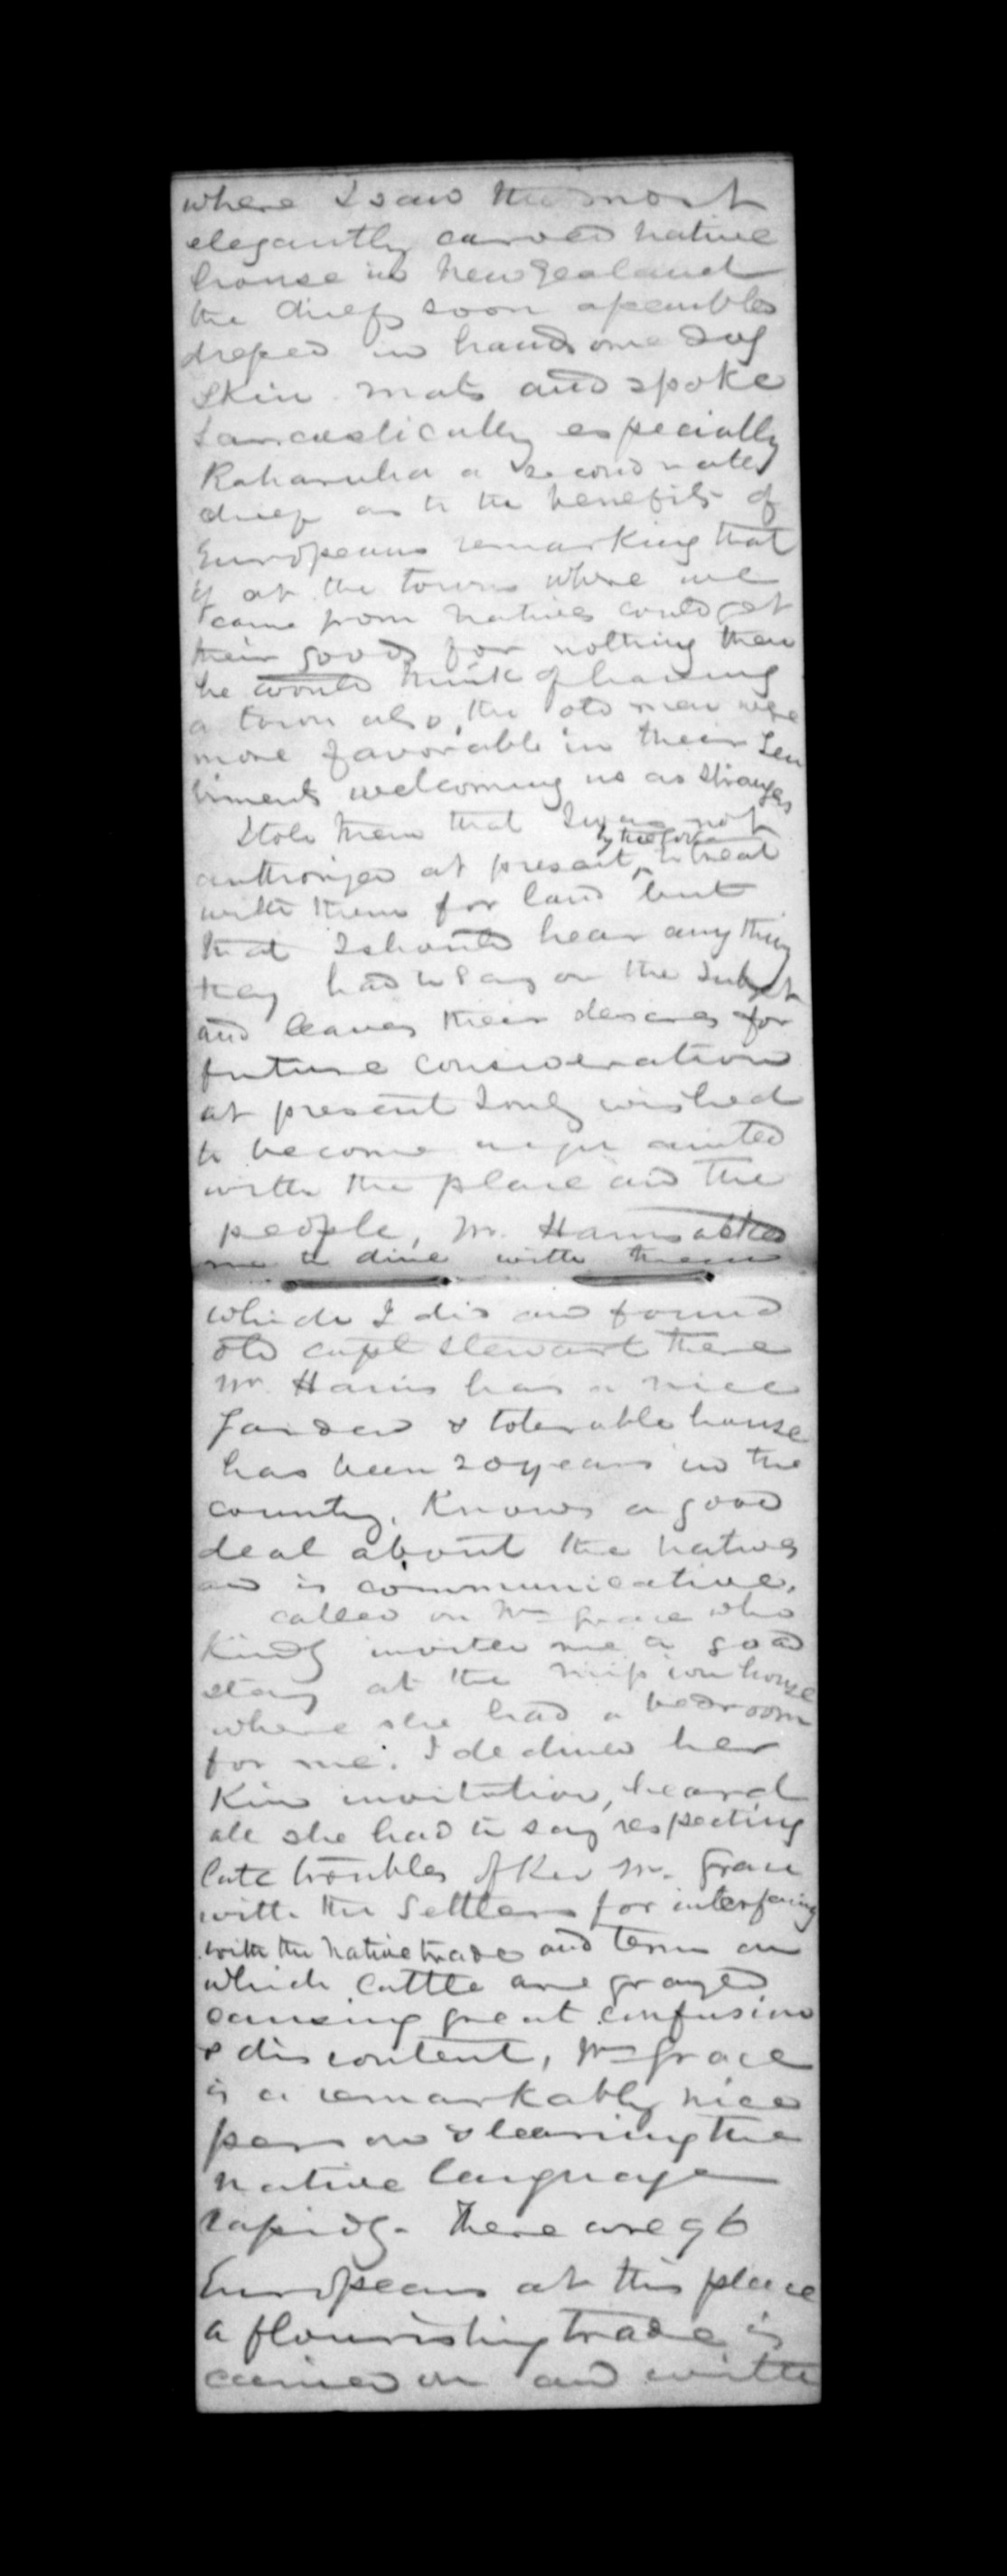 where I saw the most
elegantly carved native
house in New Zealand
the chiefs soon assembled
dressed in handsome dog
skin mats and spoke
sarcastically especially
Raharuhi a second rate
chief as to the benefits of
Europeans remarking that
if at the towns where we
came from natives could get
their goods for nothing then
he would think of having
a town also, the old men were
more favorable in their sen
timents welcoming us as strangers
I told them that I was not
authorized at present, by the Govr to treat
with them for land but
that I should hear any thing
they had to say on the subject
and leave their desires for
future consideration
at present I only wished
to become acquainted
with the place and the
people, Mr. Harris asked
me to dine with them
which I did and found
old Capt Stewart there
Mr. Harris has a nice
garden & tolerable house
has been 20 years in the
country, knows a good
deal about the natives
and is communicative.
called on Mrs Grace who
kindly invited me a good
stay at the mission house
where she had a bedroom
for me. I declined her
kind invitation, heard
all she had to say respecting
late troubles of Rev Mr. Grace
with the Settlers for interfering
with the native trade and terms on
which cattle are grazed
causing great confusion
& discontent, Mrs Grace
is a remarkably nice
person & learning the
native language
rapidly. There are 96
Europeans at this place
a flourishing trade is
carried on and with